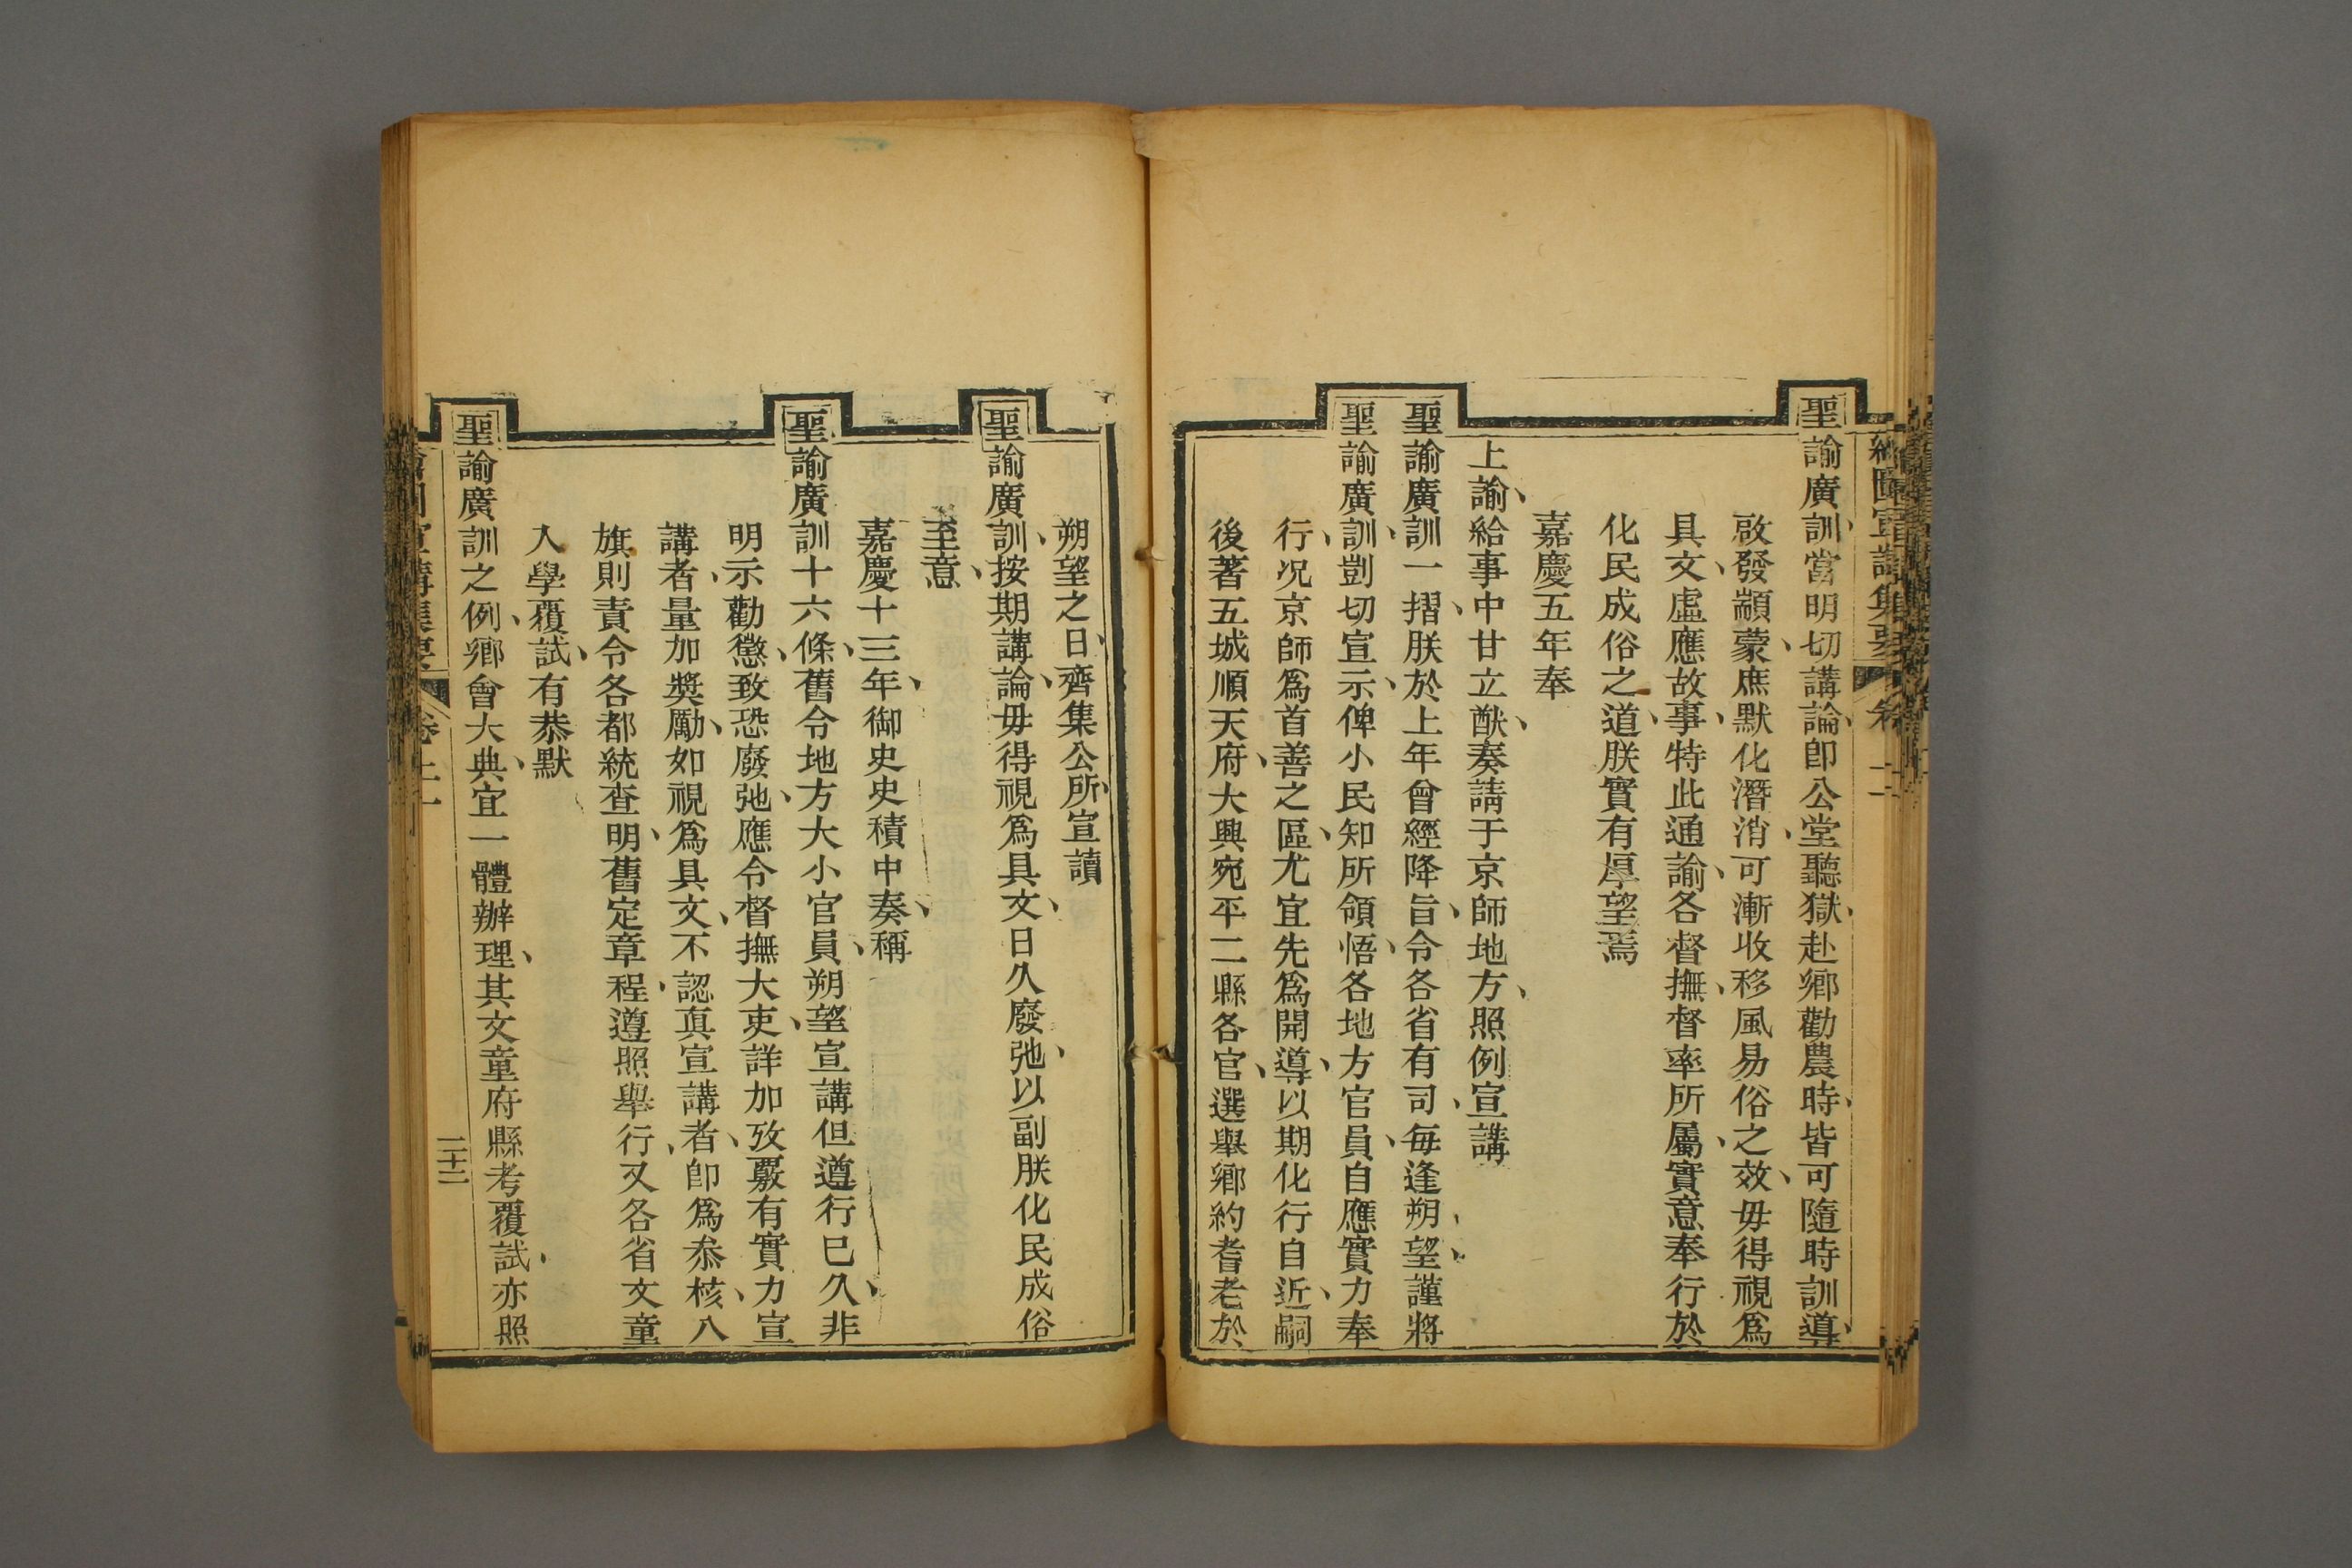 聖諭廣訓當明切講論卽公堂聽獄赴鄉勸農時皆可隨時訓導
啟發顓蒙庶默化潛消可漸收移風易俗之效毋得視爲
具文虛應故事特此通諭各督撫督率所屬實意奉行於
化民成俗之道朕實有厚望焉
嘉慶五年奉
上諭給事中甘立猷奏請于京師地方照例宣講
聖諭廣訓一摺朕於上年曾經降旨令各省有司每逢朔望謹將
聖諭廣訓剴切宣示俾小民知所領悟各地方官員自應實力奉
行况京師爲首善之區尤宜先爲開導以期化行自近嗣
後著五城順天府大興宛平二縣各官選舉鄉約耆老於
朔望之日齊集公所宣讀
聖諭廣訓按期講論毋得視爲具文日久廢弛以副朕化民成俗
至意
嘉慶十三年御史史積中奏稱
聖諭廣訓十六條舊令地方大小官員朔望宣講但遵行已久非
明示勸懲致恐廢弛應令督撫大吏詳加攷覈有實力宣
講者量加獎勵如視爲具文不認眞宣講者卽爲叅核八
旗則責令各都統查明舊定章程遵照舉行又各省文童
入學覆試有恭默
聖諭廣訓之例鄉會大典宜一體辦理其文童府縣考覆試亦照
宣講集要 卷 二十二